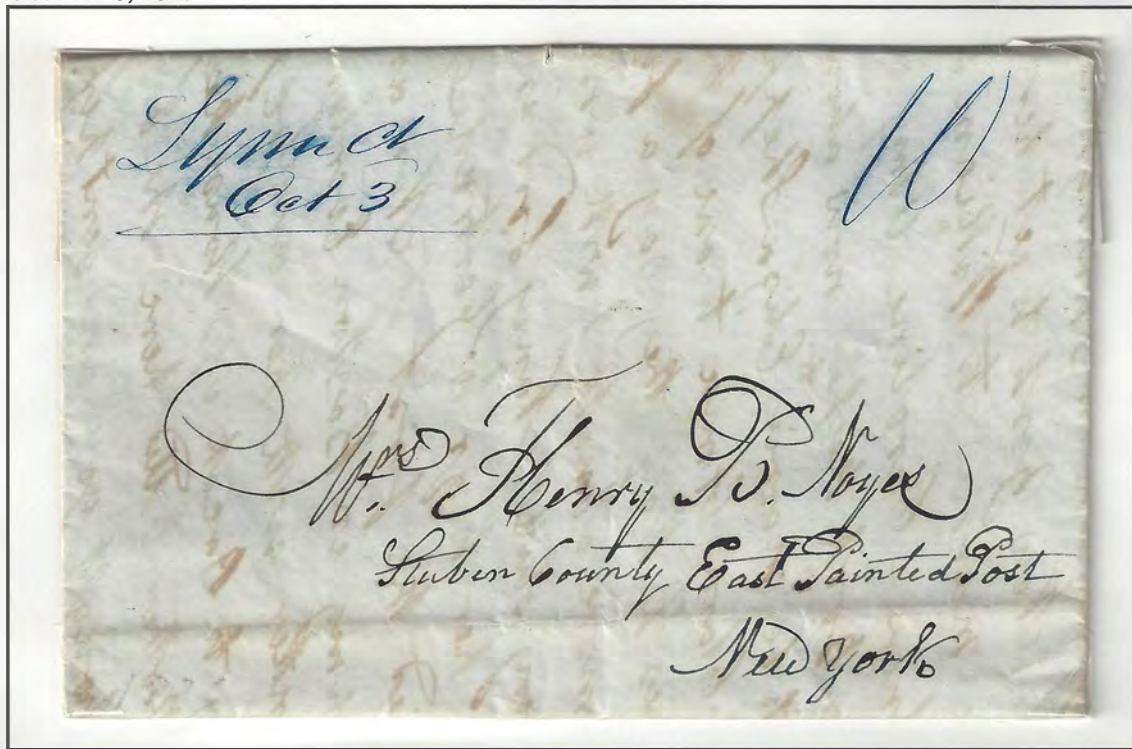 Lynn Ct
Oct 3
10
Mrs. Henry B. Noyes
Stuben County East Painted Post
New York